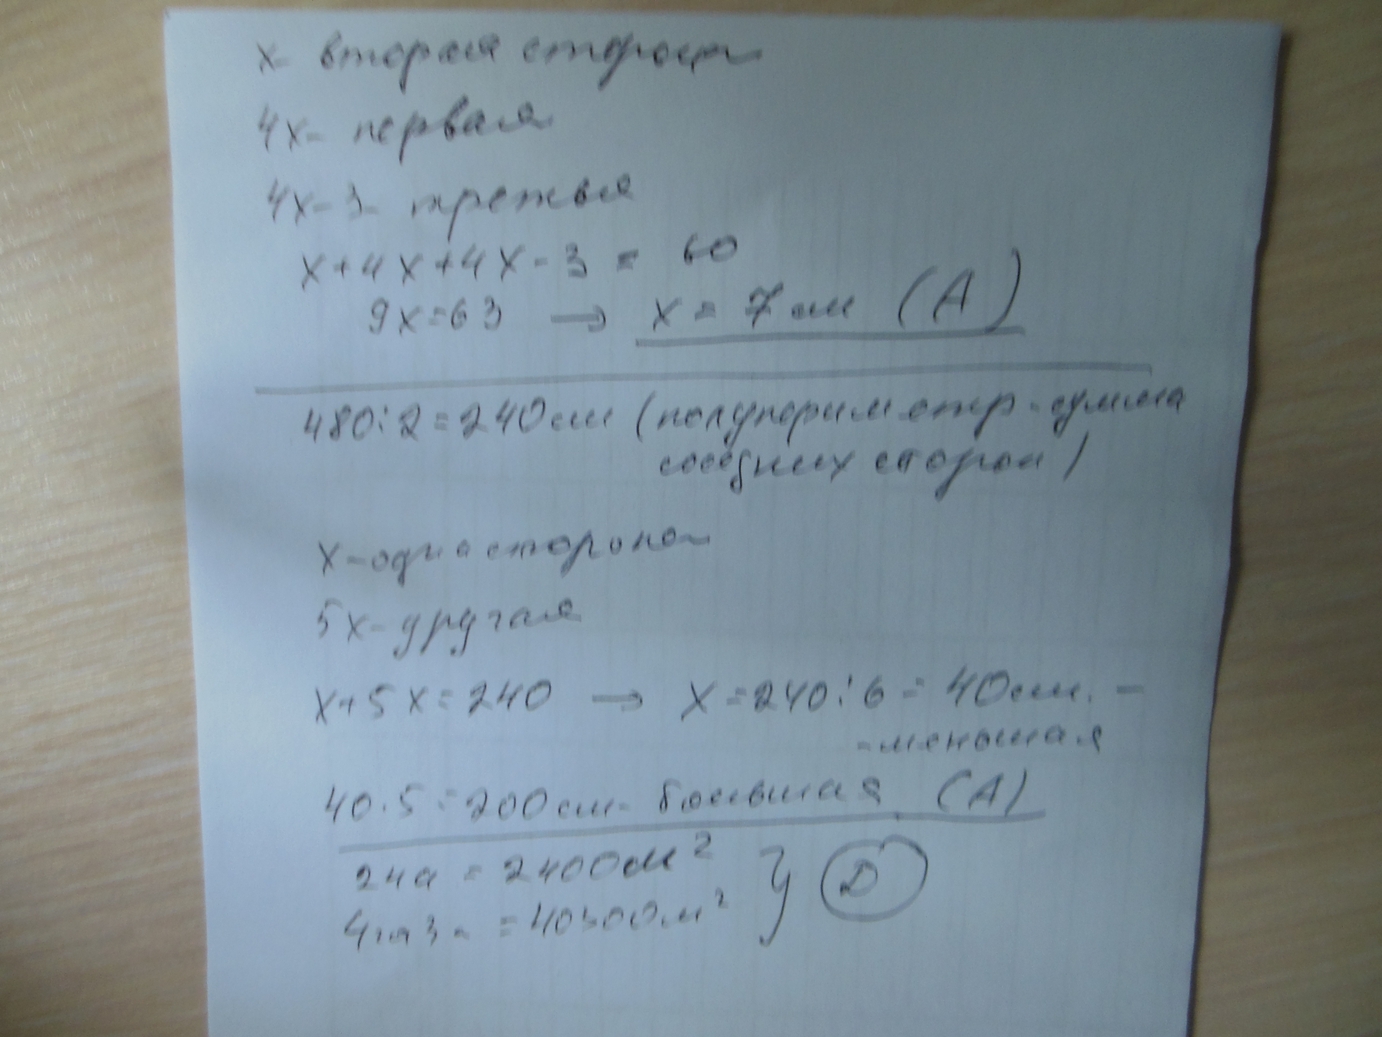 x- вторая сторона
4x- первая
4x-3- третья
x+4x+4x-3 = 60
9x=63 → x = 7 см (А)
480:2=240 см (полупериметр-сумма
соседних сторон)
x-одна сторона
5x-другая
x+5x=240 → x=240:6=40см. -
-меньшая
40·5=200см- большая (А)
24а = 2400м²
4га3а = 40300м² } (D)